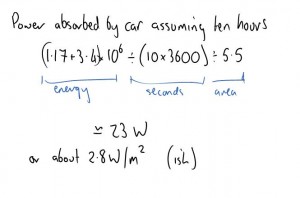 Power absorbed by car assuming ten hours
(1.17+3.4)×10⁶ ÷ (10×3600) ÷ 5.5
energy seconds area
≃ 23 W
or about 2.8 W/m² (ish)